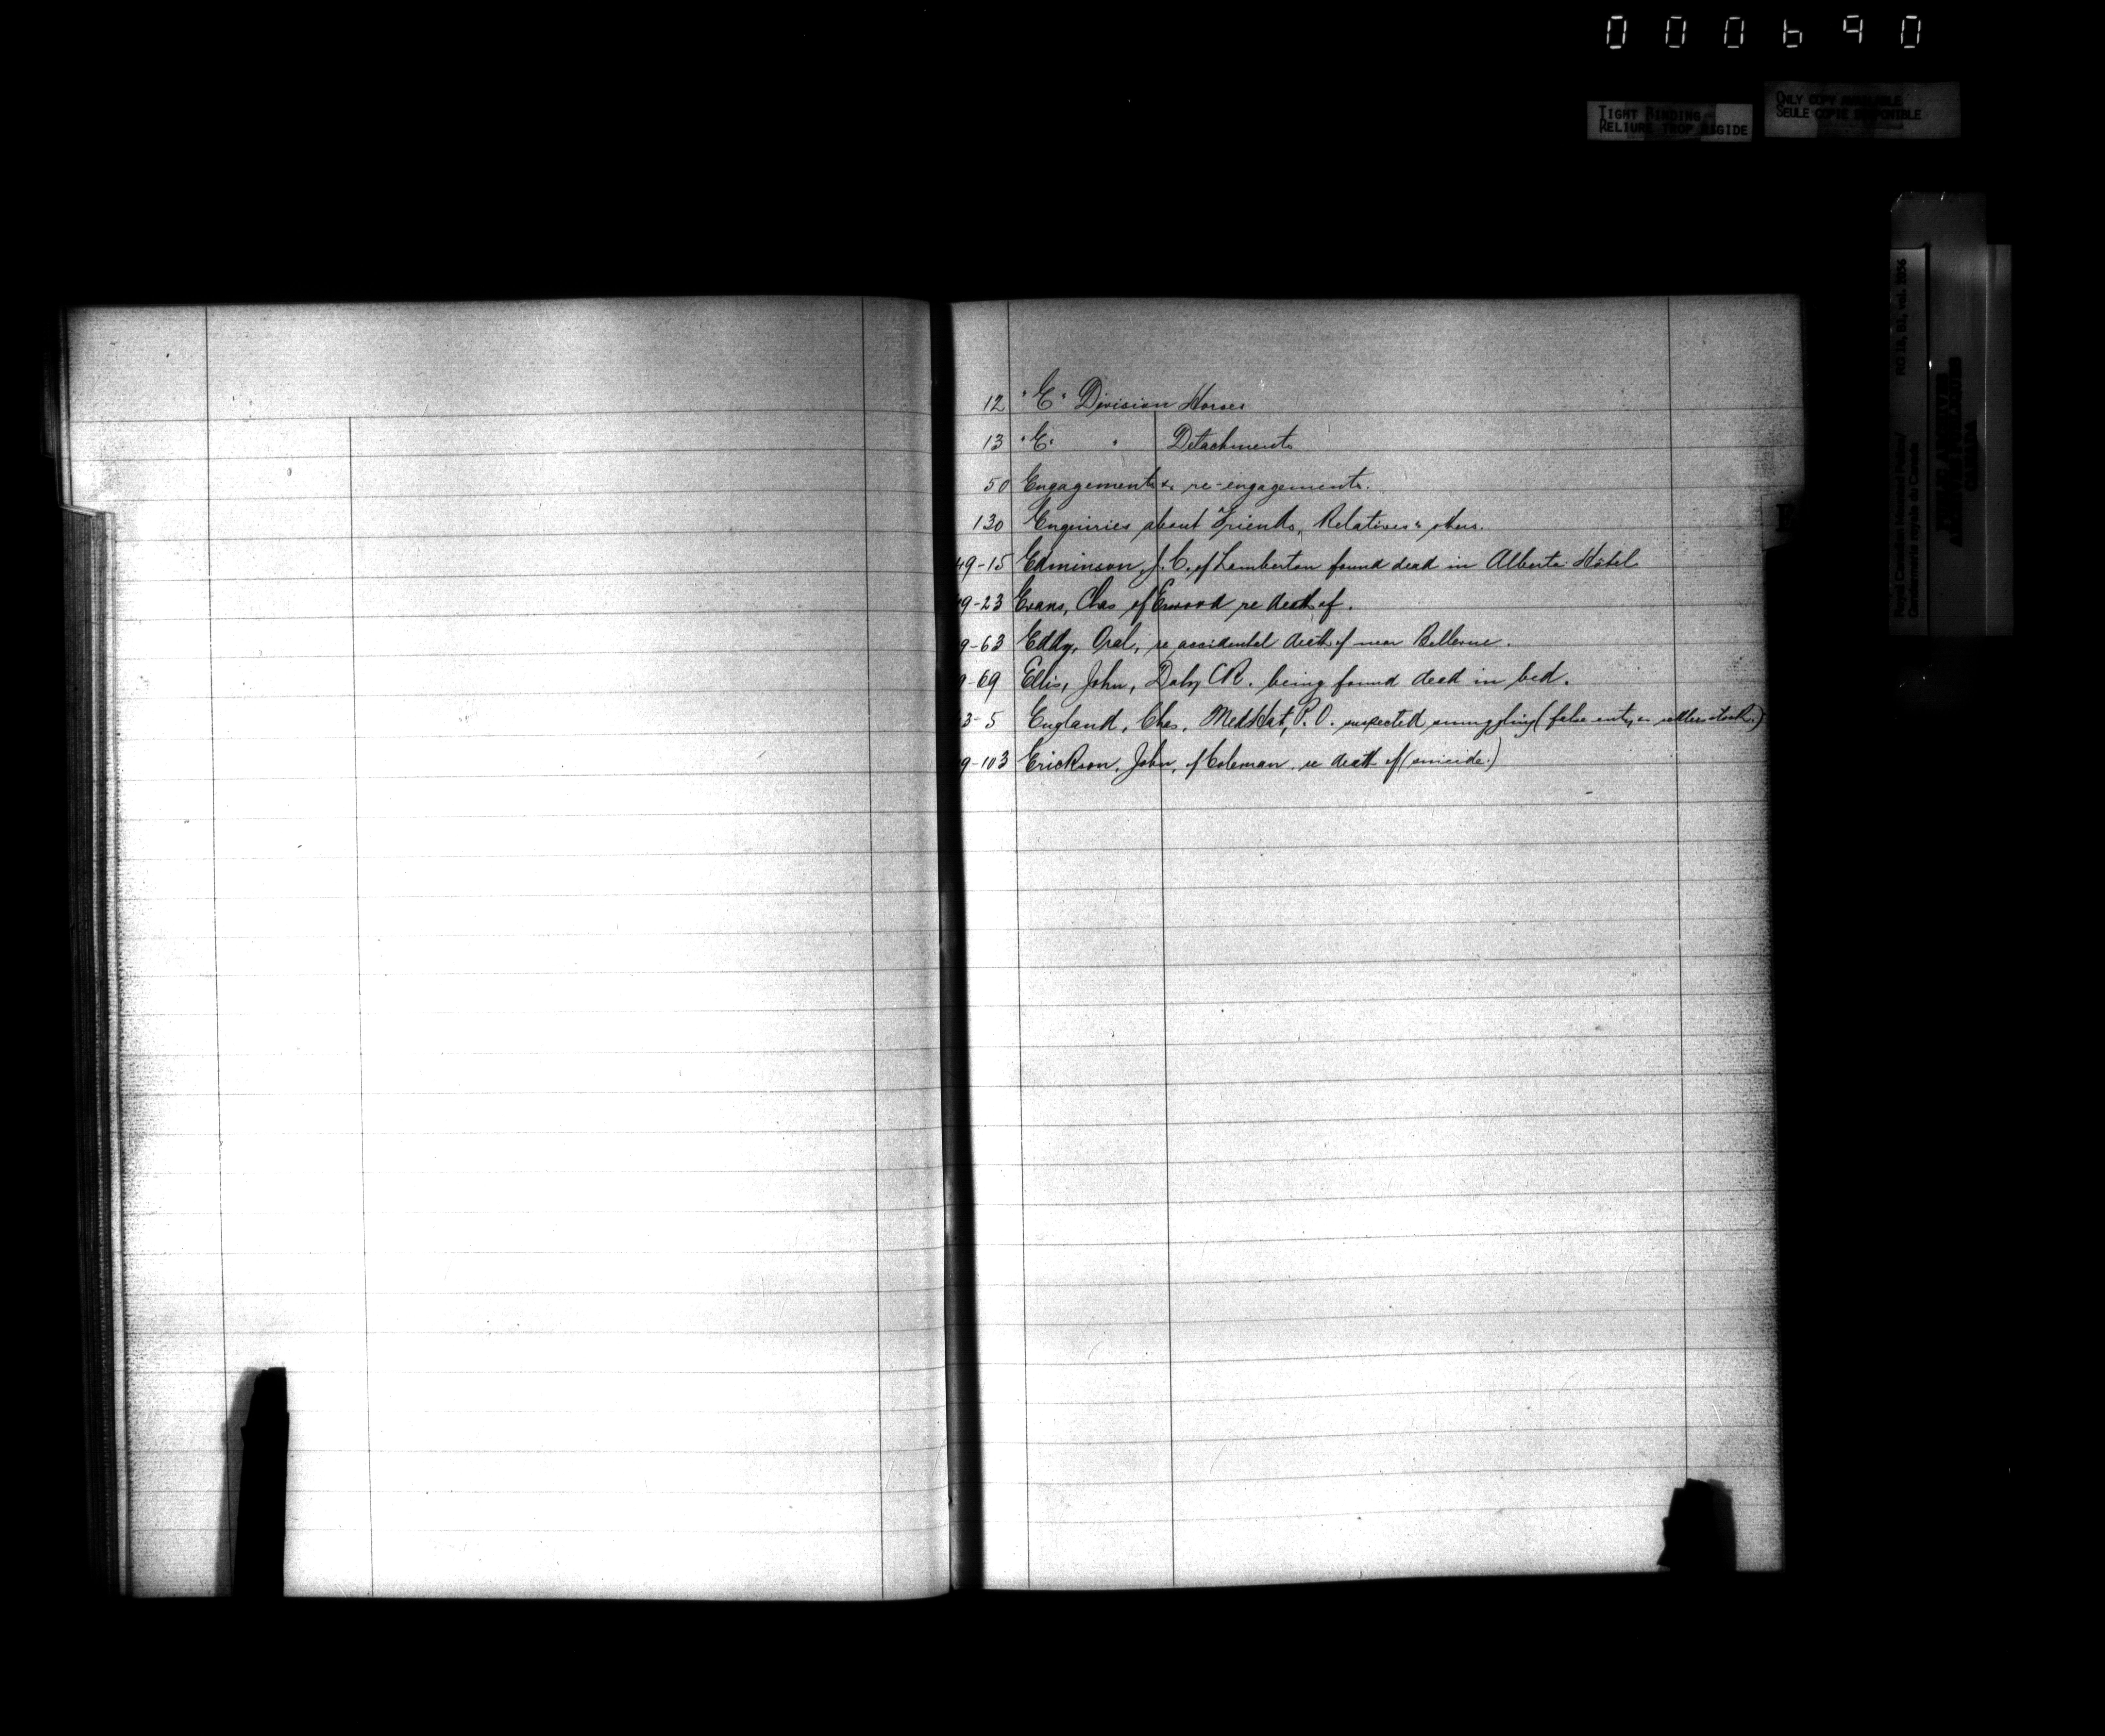 000690
TIGHT BINDING
RELIURE TROP RIGIDE
ONLY COPY AVAILABLE
SEULE COPIE DISPONIBLE
Royal Canadian Mounted Police/
Gendarmerie royale du Canada
RG 18, B1, vol.
CANADA
12 "E" Division Horses
13 "E" " Detachments
50 Engagements & re-engagements.
130 Enquiries about Friends, Relatives & others.
49-15 Edminson, J. C. of Lamberton found dead in Alberta Hotel
9-23 Evans, Chas of Erwood re death of.
9-63 Eddy, Opal, re accidental death of near Bellevue.
9-69 Ellis, John, Daly CR. being found dead in bed.
3-5 England, Chas, Med Hat, P.O. suspected smuggling (false entry settlers stock.)
9-103 Erickson, John, of Coleman re death of (suicide.)